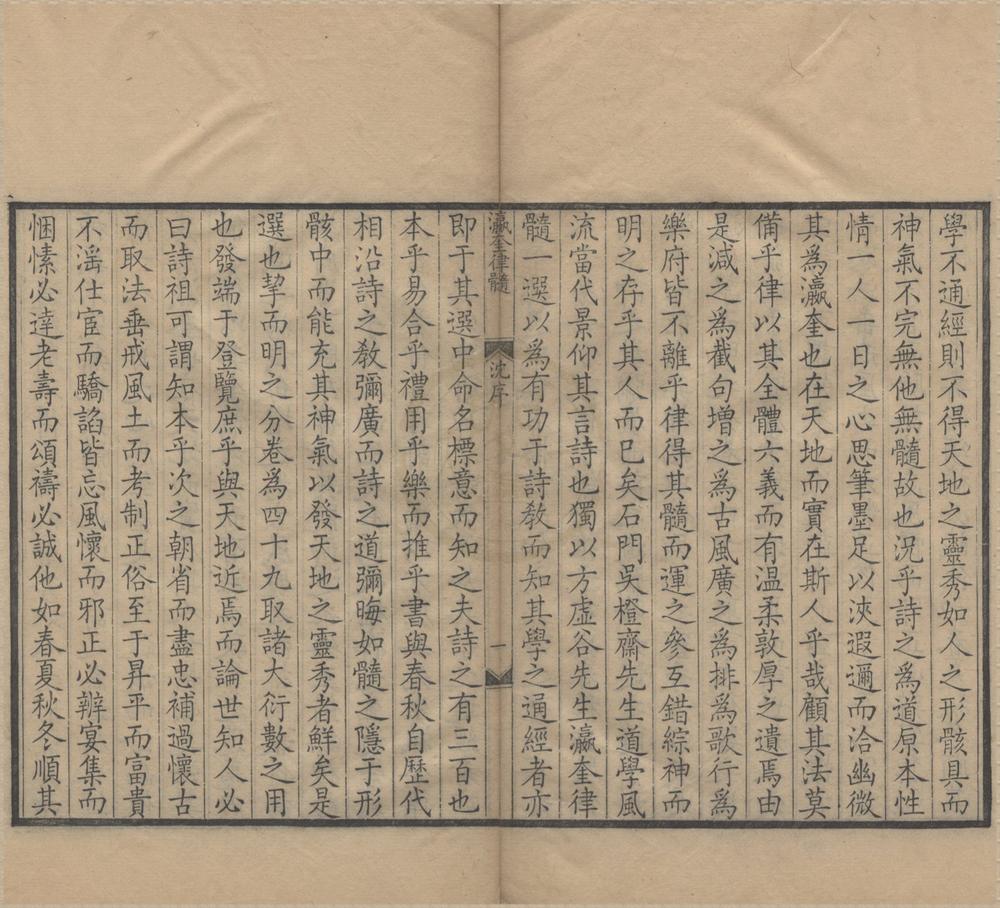 學不通經則不得天地之靈秀如人之形骸具而
神氣不完無他無髓故也況乎詩之為道原本性
情一人一日之心思筆墨足以浹遐邇而洽幽微
其為瀛奎也在天地而實在斯人乎哉顧其法莫
備乎律以其全體六義而有温柔敦厚之遺焉由
是減之為截句增之為古風廣之為排為歌行為
樂府皆不離乎律得其髓而運之參互錯綜神而
明之存乎其人而已矣石門吳橙齋先生道學風
流當代景仰其言詩也獨以方虛谷先生瀛奎律
髓一選以為有功于詩教而知其學之通經者亦
瀛奎律髓 沈序 一
即于其選中命名標意而知之夫詩之有三百也
本乎易合乎禮用乎樂而推乎書與春秋自歷代
相沿詩之教彌廣而詩之道彌晦如髓之隱于形
骸中而能充其神氣以發天地之靈秀者鮮矣是
選也挚而明之分卷為四十九取諸大衍數之用
也發端于登覽庶乎與天地近焉而論世知人必
曰詩祖可謂知本乎次之朝省而盡忠補過懷古
而取法垂戒風土而考制正俗至于昇平而富貴
不滛仕宦而驕諂皆忘風懷而邪正必辨宴集而
悃愫必達老壽而頌禱必誠他如春夏秋冬順其